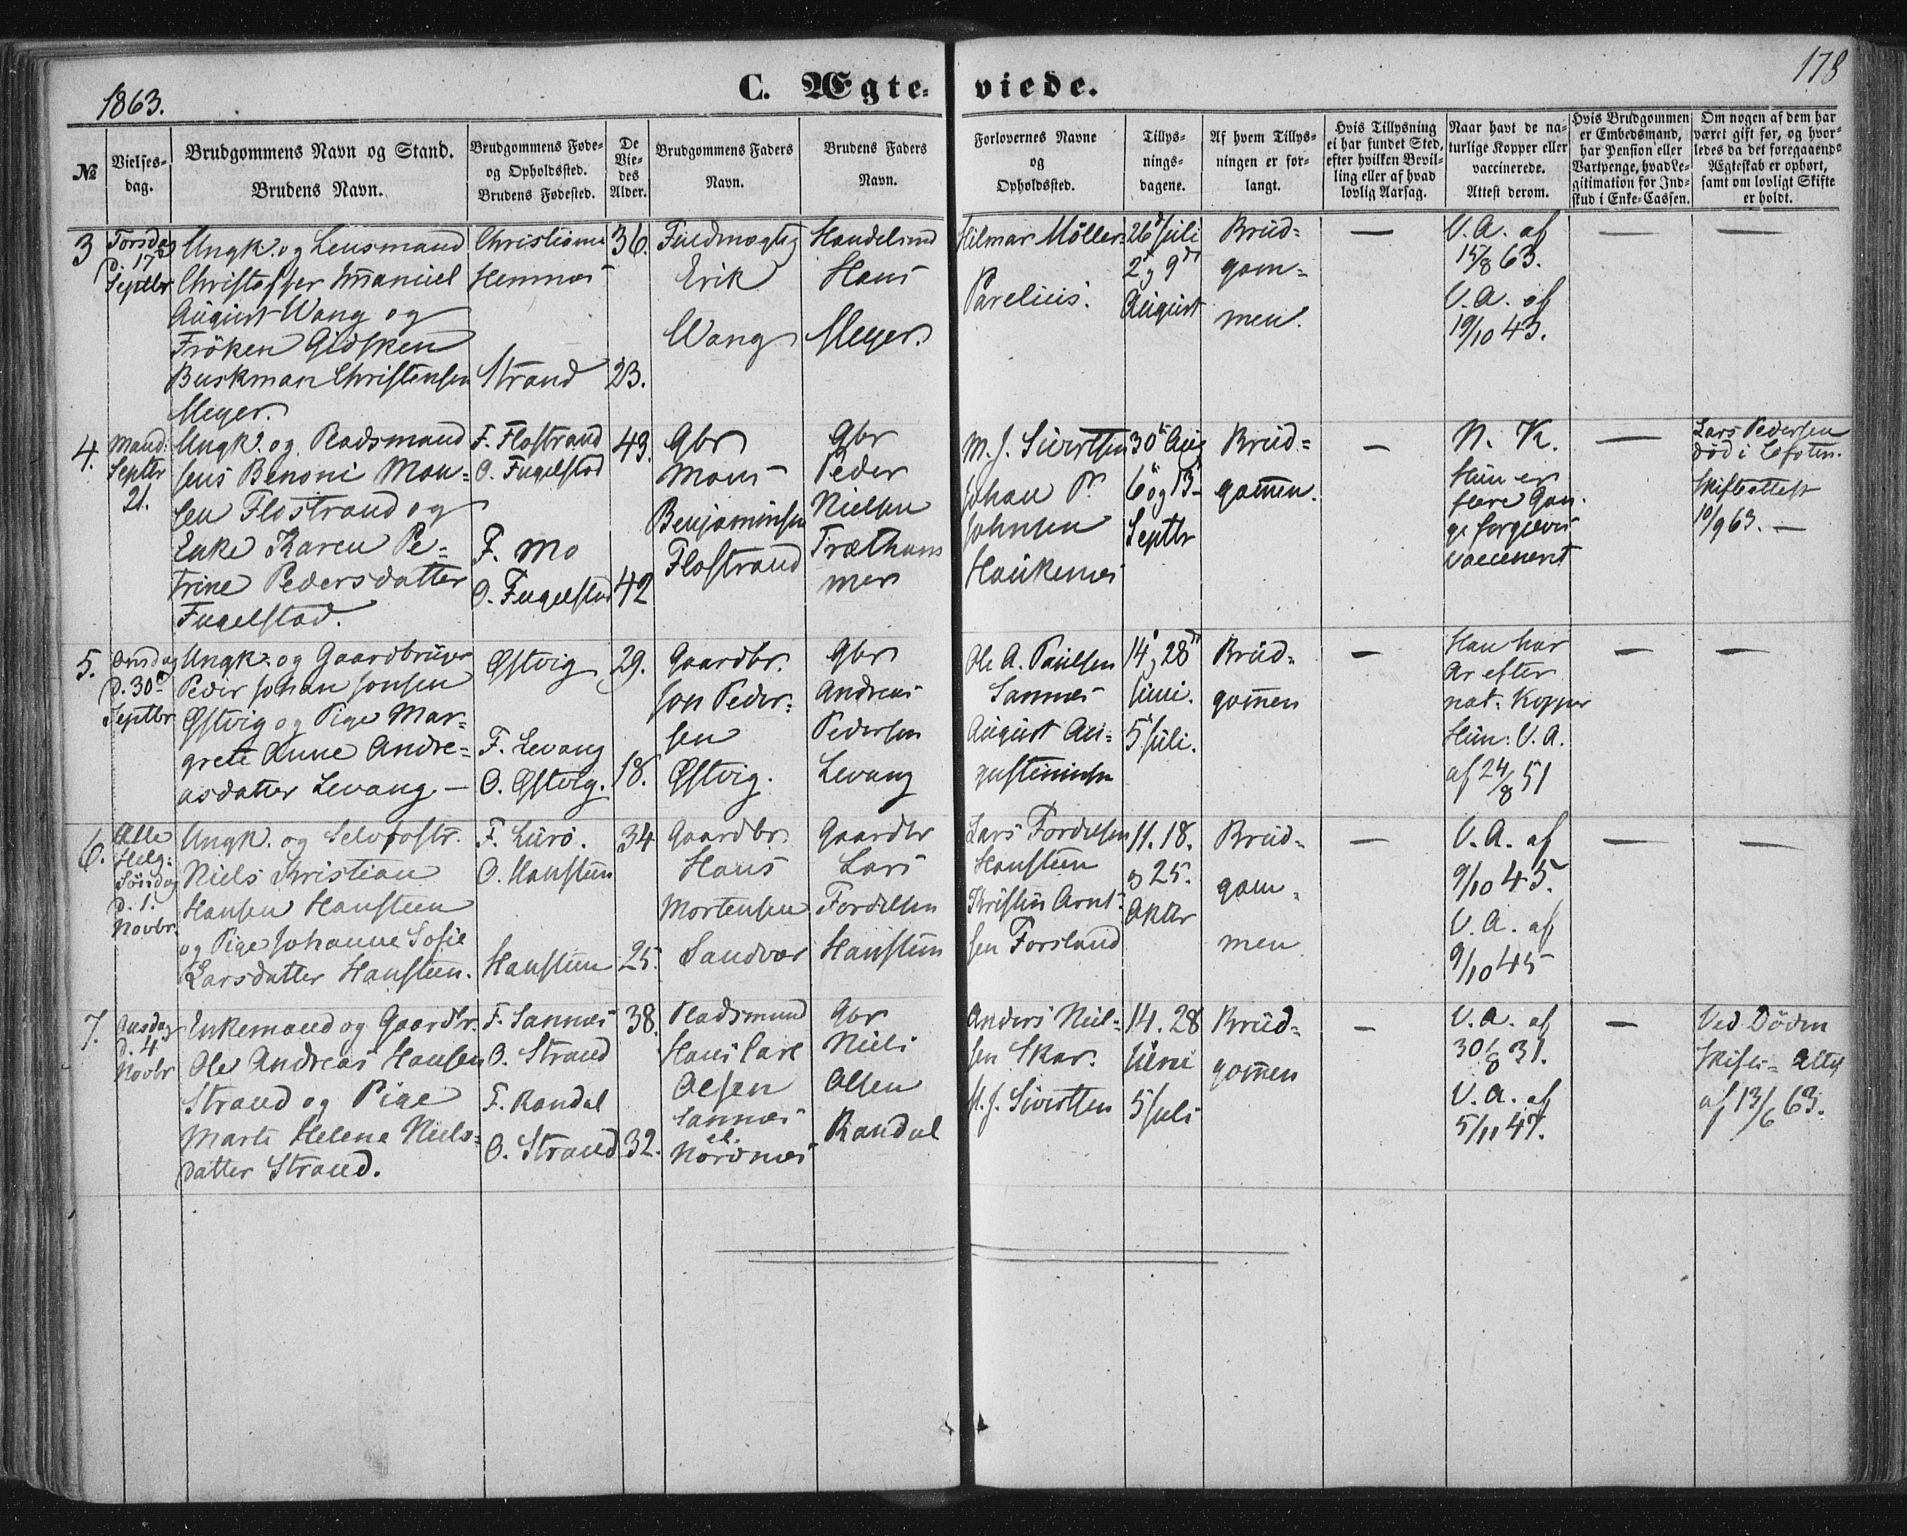 1863.
C. Ægte-
viede.
178
№
Vielses-
dag.
Brudgommens Navn og Stand.
Brudens Navn.
Brudgommens Føde-
og Opholdssted.
Brudens Fødested.
De
Vie-
des
Alder.
Brudgommens Faders
Navn.
Brudens Faders
Navn.
Forlovernes Navne
og
Opholdssted.
Tillys-
nings-
dagene.
Af hvem Tillys-
ningen er for-
langt.
Hvis Tillysning
ei har fundet Sted,
efter hvilken Bevil-
ling eller af hvad
lovlig Aarsag.
Naar havt de na-
turlige Kopper eller
vaccinerede.
Attest derom.
Hvis Brudgommen
er Embedsmand,
har Pension eller
Vartpenge, hvad Le-
gitimation for Ind-
skud i Enke-Cassen.
Om nogen af dem har
været gift før, og hvor-
ledes da det foregaaende
Ægteskab er ophørt,
samt om lovligt Skifte
er holdt.
3
Torsdag
d. 17de
Septbr
Ungk. og Lensmand
Christoffer Imanuel
August Wang og
Frøken Gidsken
Buskman Christensen
Meyer.
Christiania
Hemnes
Strand
36.
23.
Fuldmægtig
Erik
Wang
Handelsmd
Hans
Meyer.
Hilmar Møller
Parelius.
26d Juli
2d og 9d
August
Brud-
gom-
men.
—
V. A. af
15/8 63.
V. A. af
19/10 43.
—
—
4.
Mand:
Septbr
21.
Ungk. og Pladsmand
Jens Benoni Mon-
sen Flostrand og
Enke Karen Pe-
trine Pedersdatter
Fugelstad.
F. Flostrand
O. Fugelstad
F. Mo
O. Fugelstad
43.
42
Gbr
Mons
Benjaminsen
Flostrand
Gbr
Peder
Nielsen
Trætham
mer
M. J. Sivertsen
Johan P.
Johnsen
Haukenes
30te Aug
6te og 13
Septbr
Brud-
gommen.
—
N. K.
Hun er
flere Gan-
ge forgjeves
vaccineret
—
Lars Pedersen
død i Lofoten.
Skifteattest
10/9 63. —
5.
Onsdag
d. 30te
Septbr
Ungk. og Gaardbruger
Peder Johan Jonsen
Østvig og Pige Mar-
grete Anne Andre-
asdatter Levang —
Østvig
F. Levang
O. Østvig.
29.
18.
Gaardbr.
Jon Peder-
sen
Østvig.
Gbr
Andreas
Pedersen
Levang
Ole A. Paulsen
Sannes
August Au-
gustinusen
14, 28d
Juni.
5 Juli.
Brud-
gommen
—
Han har
Ar efter
nat: Kopper
Hun: V. A.
af 24/8 51
—
—
6.
Alle
Helg:
Søndag
d. 1.
Novbr.
Ungk. og Selvfostr.
Niels Kristian
Hansen Hansteen
og Pige Johanne Sofie
Larsdatter Hansteen.
F. Lurø.
O. Hansteen
Hansteen
34
25.
Gaardbr.
Hans
Mortensen
Sandvær
Gaardbr
Lars
Fordelsen
Hansteen
Lars Fordelsen
Hansteen
Kristen Arnt-
sen Forsland
11. 18.
og 25.
Oktbr
Brud-
gom-
men
—
V. A. af
9/10 45.
V. A. af
9/10 45
—
—
7.
Onsdag
d. 4
Novbr
Enkemand og Gaardbr.
Ole Andreas Hansen
Strand og Pige
Marte Helena Niels-
datter Strand.
F. Sannes
O. Strand
F. Randal
O. Strand
38.
32.
Pladsmand
Hans Carl
Olsen
Sannes
el.
Nordnes
Gbr
Niels
Olsen
Randal
Anders Niel-
sen Skar.
M. J. Sivertsen
14. 28
Juni
5 Juli
Brud-
gommen
—
V. A. af
30/8 31.
V. A. af
5/11 47.
—
Ved Døden
Skifte- Attest
af 13/6 63.